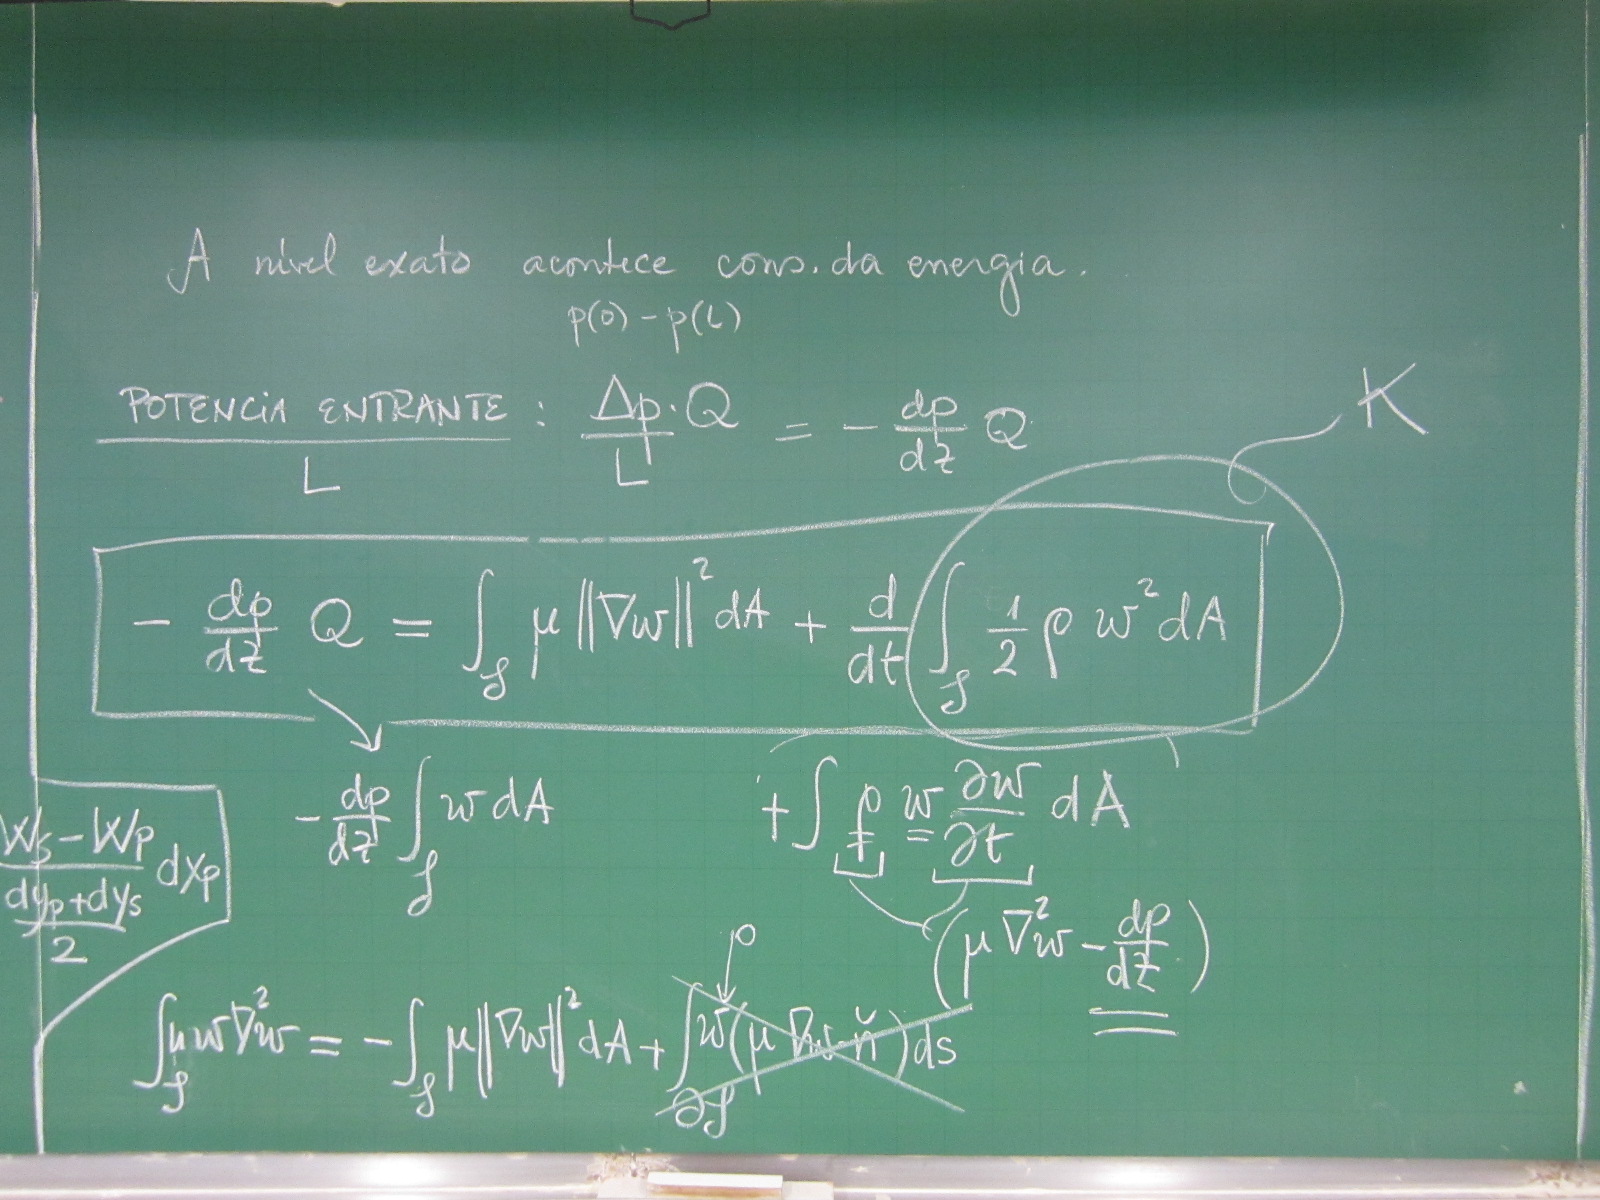 A nível exato acontece cons. da energia.
p(0) - p(L)
POTENCIA ENTRANTE / L : Δp/L · Q = - dp/dz Q
K
- dp/dz Q = ∫_𝒮 μ ‖∇w‖² dA + d/dt ∫_𝒮 1/2 ρ w² dA
- dp/dz ∫_𝒮 w dA + ∫ ρ w ∂w/∂t dA
(μ ∇²w - dp/dz)
(W_s - W_p) / ((dy_p + dy_s)/2) dx_p
0
∫_𝒮 μ w ∇²w = - ∫_𝒮 μ ‖∇w‖² dA + ∫_∂𝒮 w (μ ∇w · ň) ds